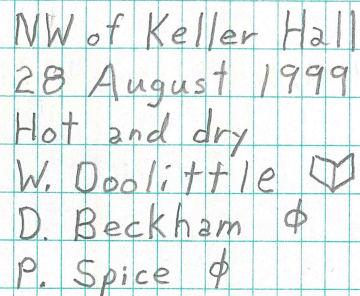 NW of Keller Hall
28 August 1999
Hot and dry
W. Doolittle
D. Beckham ϕ
P. Spice ϕ